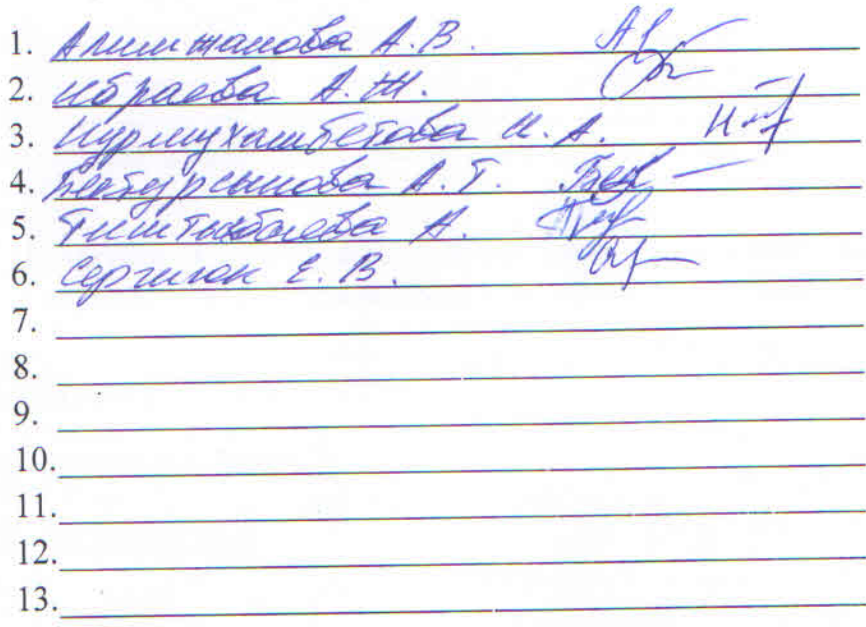 1. Алимжанова А.В.
2. Ибраева А.Ж.
3. Нурмухамбетова И.А.
4. Бектурсынова А.Т.
5. А.
6. Сергиюк Е.В.
7.
8.
9.
10.
11.
12.
13.